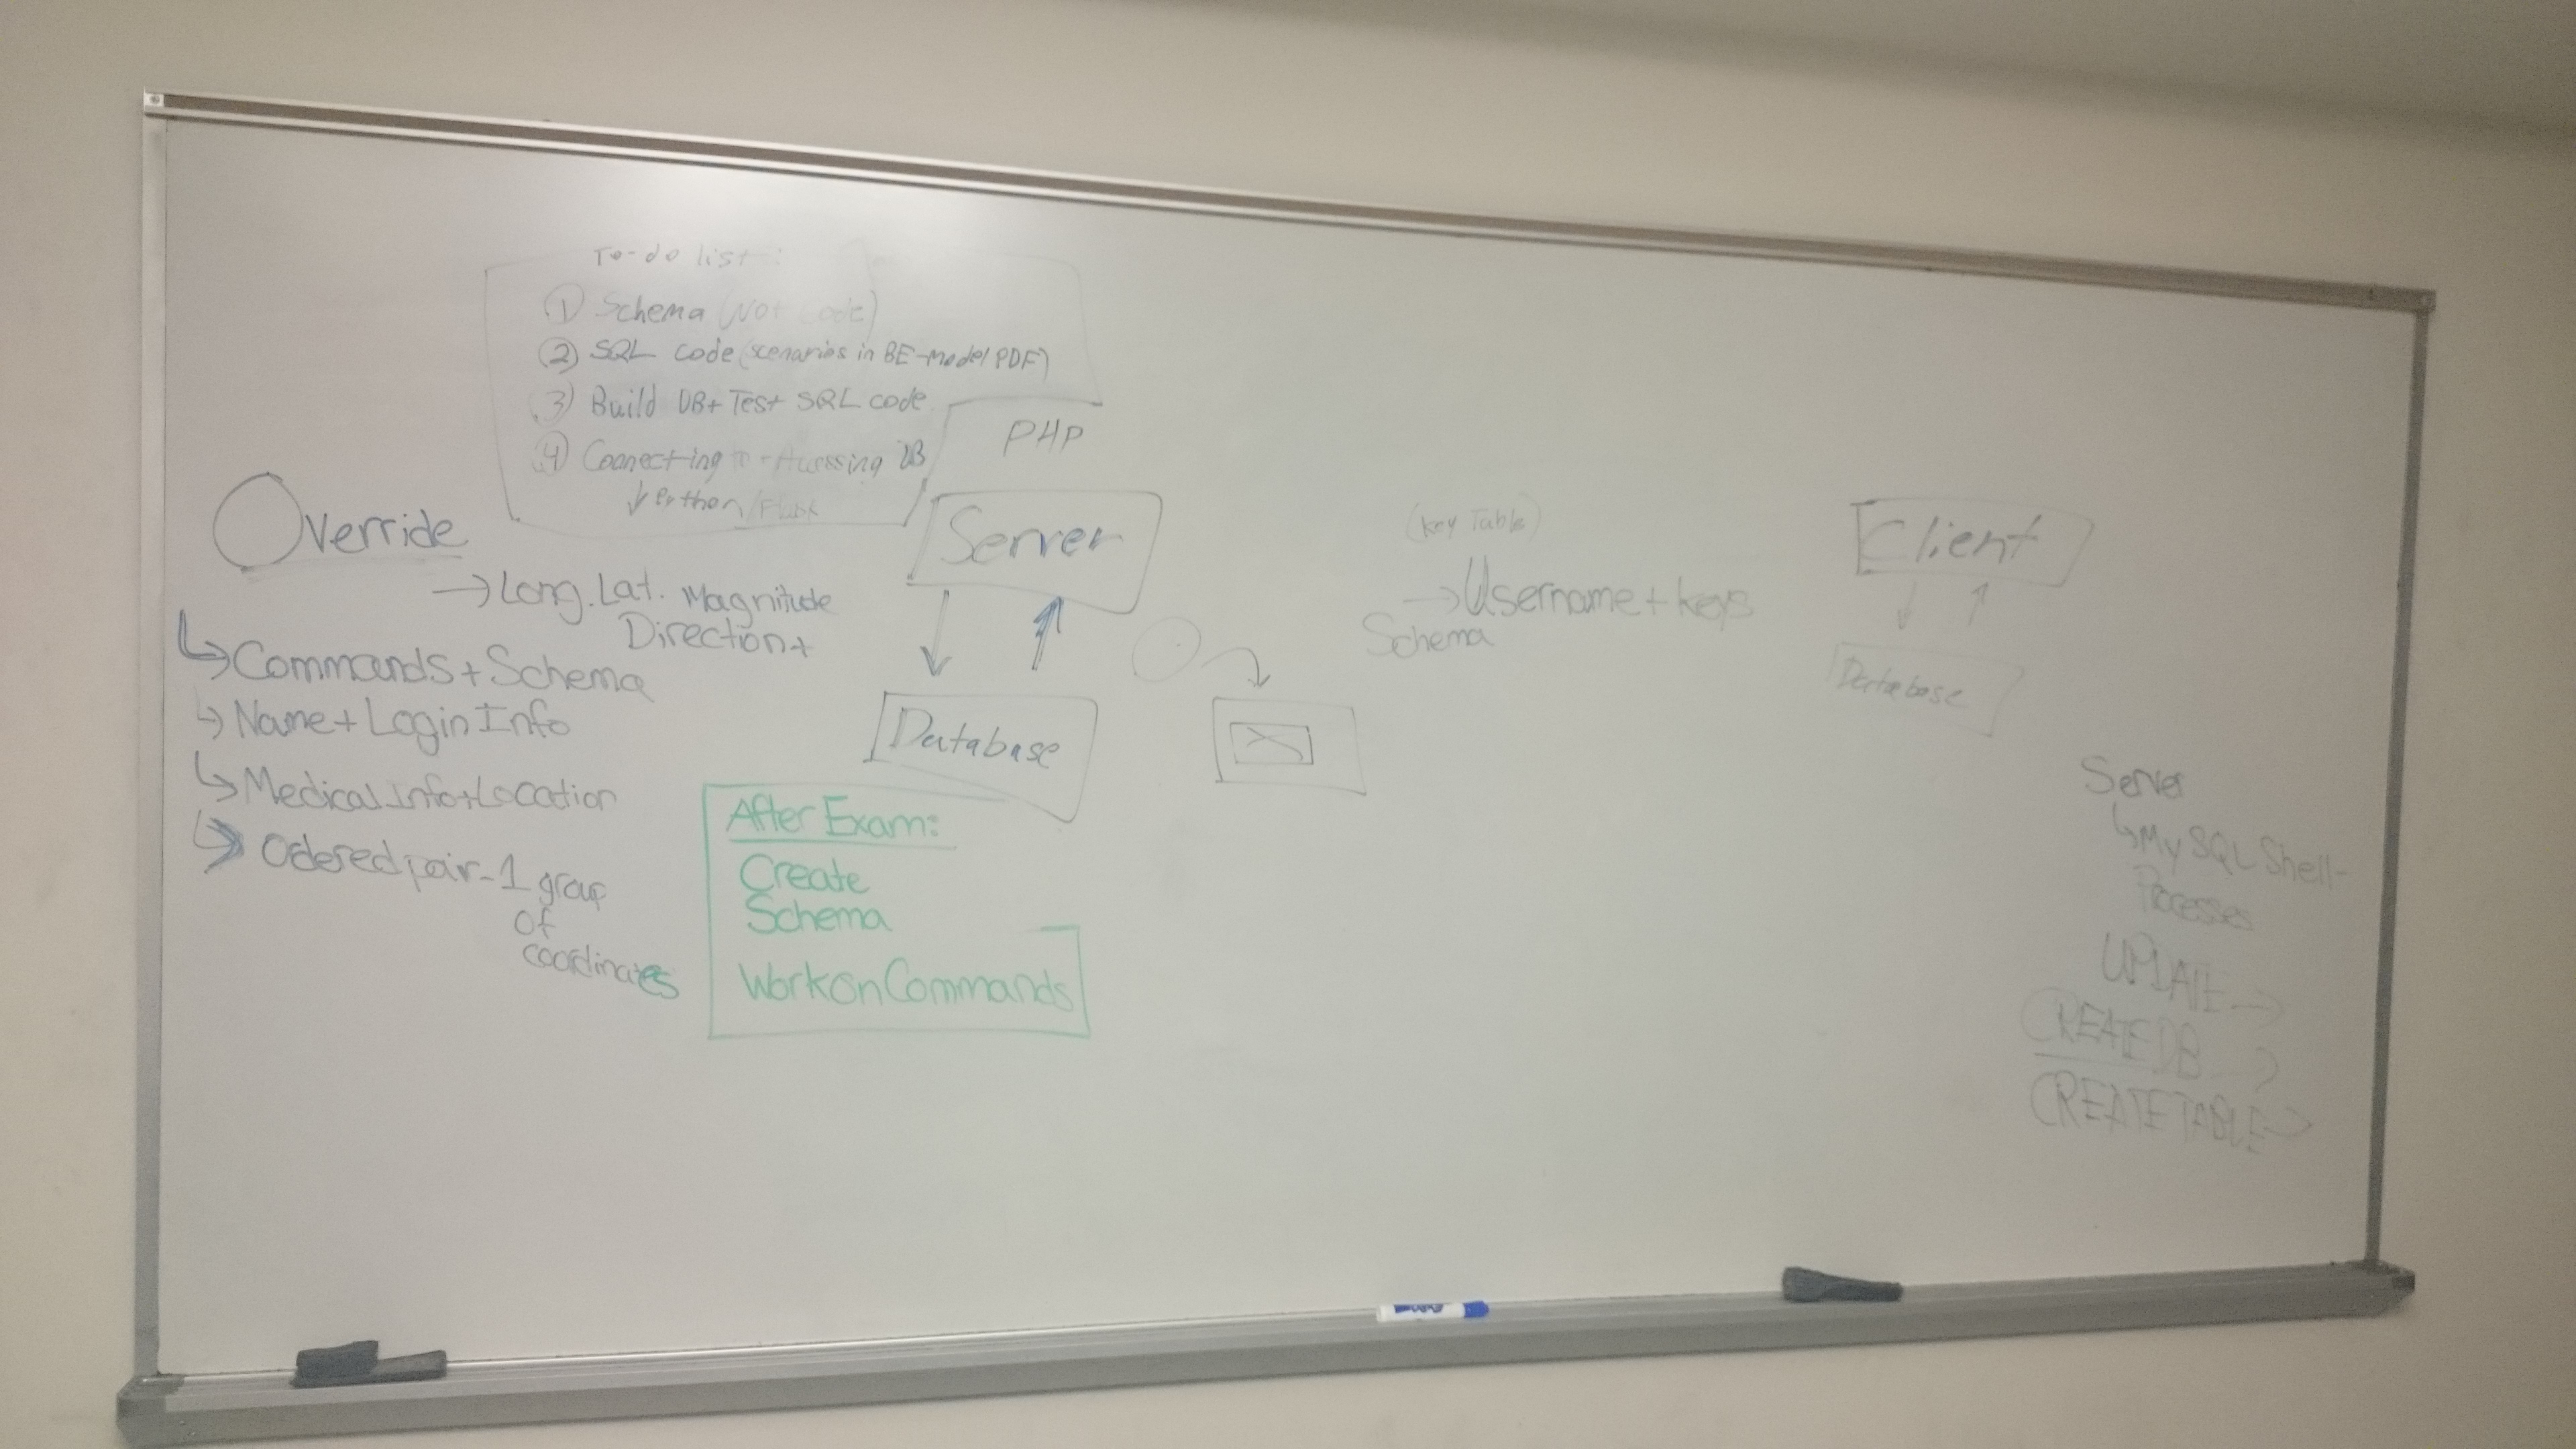 To-do list:
① Schema (Not code)
② SQL code (scenarios in BE-Model PDF)
③ Build DB + Test SQL code
④ Connecting to + Acessing DB
↓ Python/Flask
PHP
Server
Database
Override
→ Long. Lat. Magnitude
Direction +
↳ Commands + Schema
↳ Name + Login Info
↳ Medical Info + Location
↳ Odered pair - 1 group
of
coordinates
After Exam:
Create
Schema
Work on Commands
(Key Table)
→ Username + keys
Schema
Client
Database
Server
↳ My SQL Shell -
Processes
UPDATE →
CREATE DB →
CREATE TABLE →